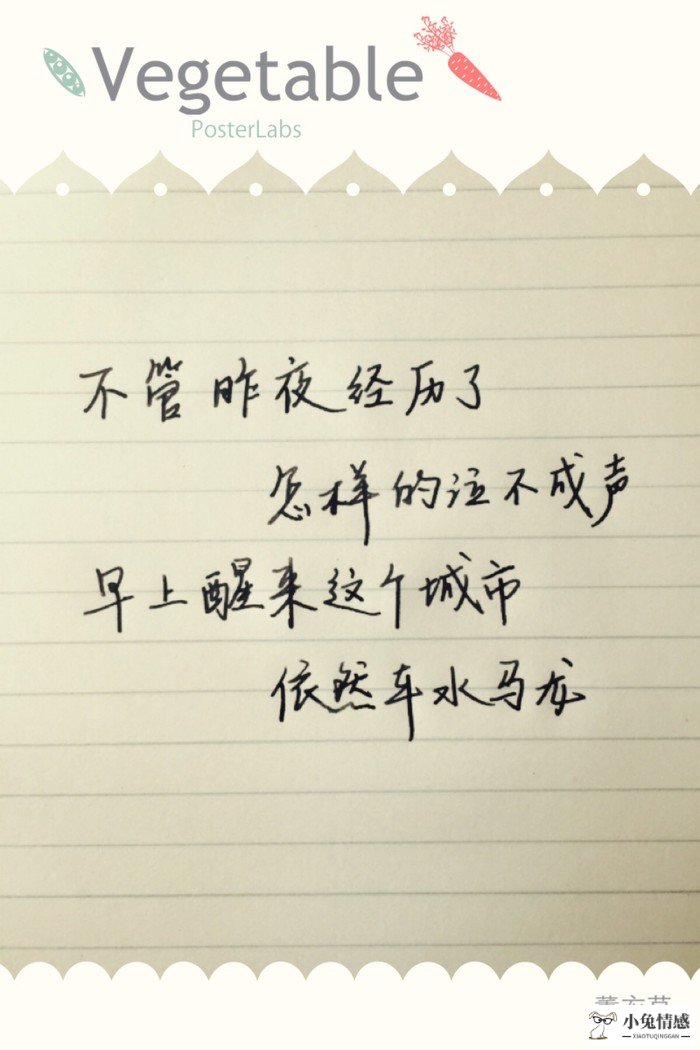 Vegetable
PosterLabs
不管昨夜经历了
怎样的泣不成声
早上醒来这个城市
依然车水马龙
小兔情感
XIAOTUQINGGAN